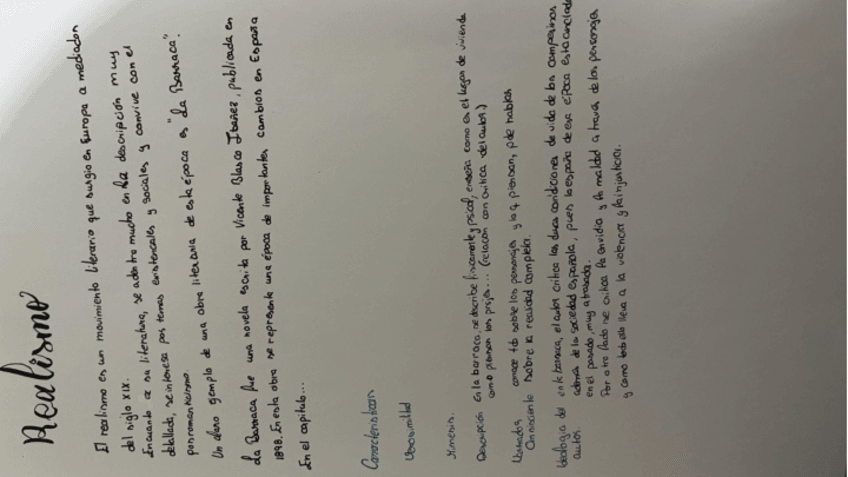 Realismo
El realismo es un movimiento literario que surgio en Europa a mediados
del siglo XIX.
En cuanto a su literatura, se adentra mucho en la descripción muy
detallada, se interesa por temas existenciales y sociales y convive con el
posromanticismo.
Un claro ejemplo de una obra literaria de esta época es "La Barraca".
La Barraca fue una novela escrita por Vicente Blasco Ibañez, publicada en
1898. En esta obra se representa una época de importantes cambios en España
En el capitulo...
Características
Verosimilitud
Mimesis.
Descripción en la barraca, se describe fisicamente y psicol, enseña como es el lugar de vivienda
como piensan los prsjs... (relación con critica del autor)
Narrador conoce tdo sobre los personajes y lo q piensan, pde hablar
Omnisciente sobre la realidad completa.
Ideologia del en la barraca, el autor critica las duras condiciones de vida de los campesinos
autor. además de la sociedad española, pues la españa de esa época esta anclada
en el pasado, muy atrasada.
Por otro lado se critica la envidia y la maldad a traves de los personajes
y como todo ello lleva a la violencia y la injusticia.